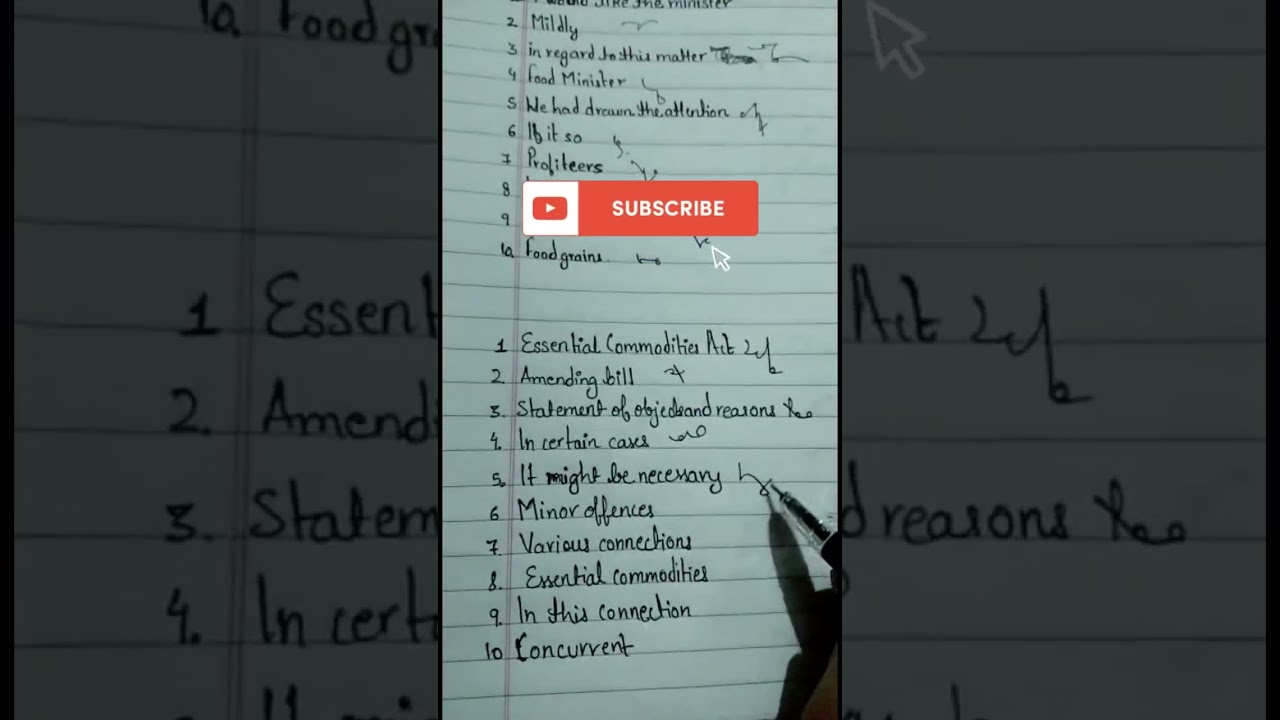 would like the minister
2 Mildly
3 in regard to this matter
4 Food Minister
5 We had drawn the attention
6 If it so
7 Profiteers
8
9
SUBSCRIBE
10 Foodgrains.
1 Essential Commodities Act
2. Amending bill
3. Statement of objects and reasons
4. In certain cases
5. It might be necessary
6 Minor offences
7 Various connections
8. Essential commodities
9. In this connection
10 Concurrent